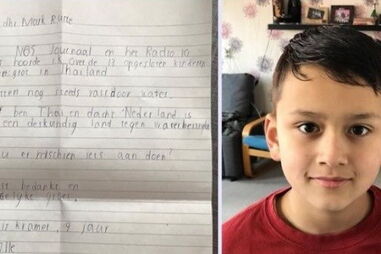 Mark Rutte
NOS Journaal en het Radio 10
hoorde ik over de 12 opgesloten kinderen
grot in Thailand
nog steeds vast door water.
ben Thai en dacht Nederland is
een deskundig land tegen
u er misschien iets aan doen?
bedankt en
Kramer, 9 jaar